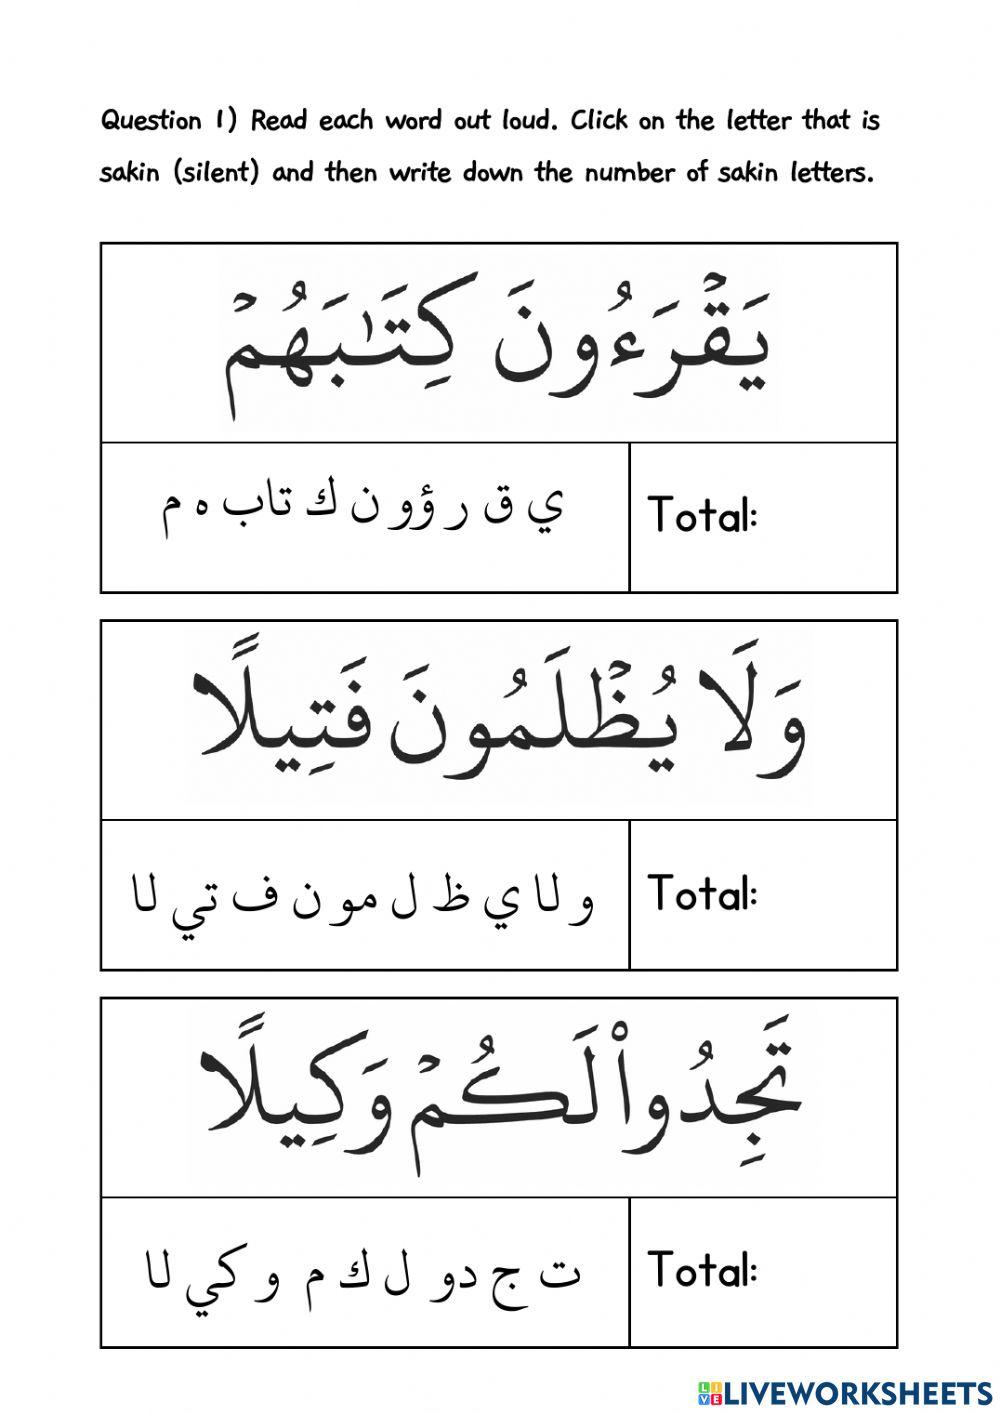 Question 1) Read each word out loud. Click on the letter that is
sakin (silent) and then write down the number of sakin letters.
يَقۡرَءُونَ كِتَٰبَهُمۡ
ي ق ر ؤو ن ك تاب ه م
Total:
وَلَا يُظۡلَمُونَ فَتِيلًا
و لا ي ظ ل مو ن ف تي لا
Total:
تَجِدُواْ لَكُمۡ وَكِيلًا
ت ج دو ل ك م و كي لا
Total:
LIVEWORKSHEETS